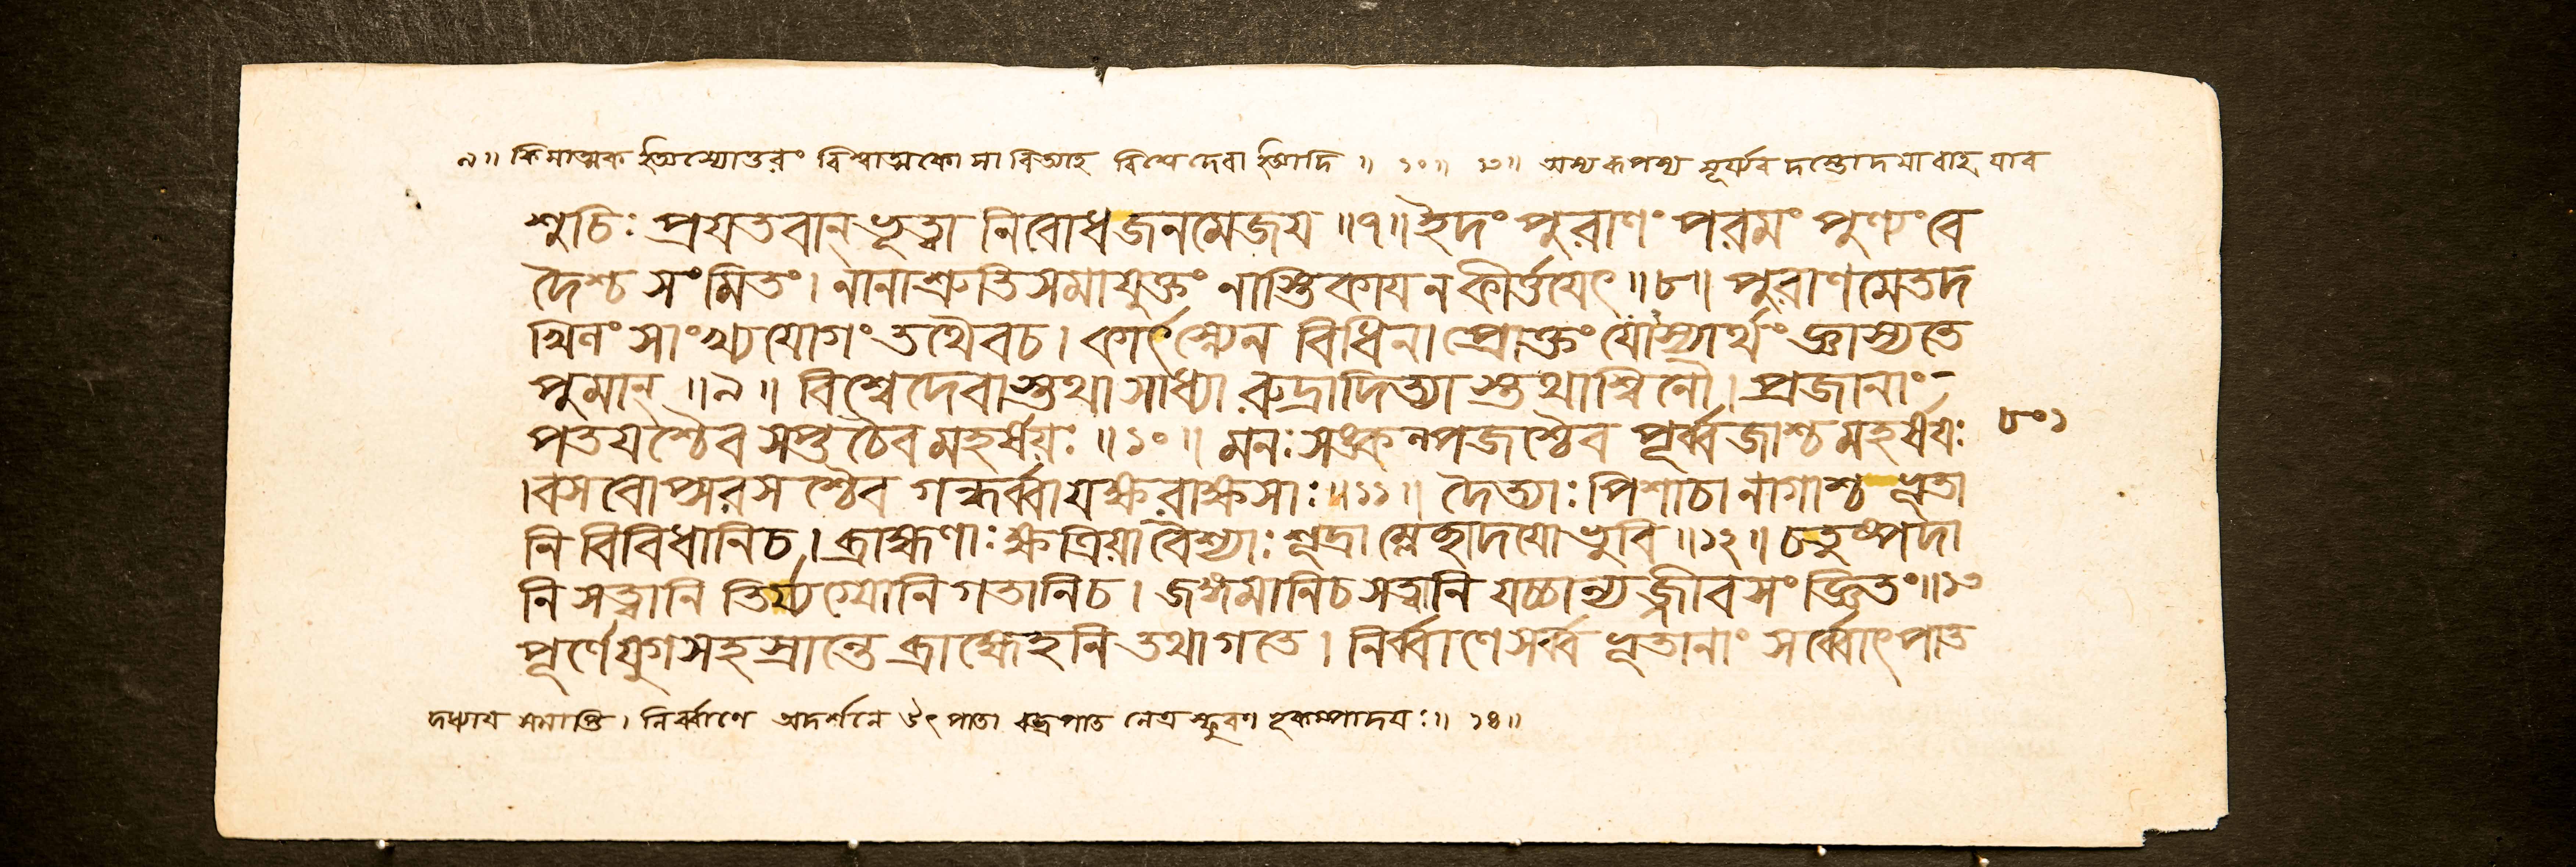 ৯॥ কিমাত্মক ইত্যস্যোত্তরং বিশ্বাত্মকো সাবিত্যাহ বিশ্বেদেবা ইত্যাদি ॥ ১০॥ ১৩॥
শুচিঃ প্রযতবান্ ভূত্বা নিবোধজনমেজয ॥৭॥ ইদং পুরাণং পরমং পুণ্যং বে
দৈশ্চ সংমিতং। নানাশ্রুতিসমাযুক্তং নাস্তিকায ন কীর্ত্তযেৎ ॥৮॥ পুরাণমেতদ
খিলং সাংখ্যযোগং তথৈবচ। কার্ৎস্ন্যেন বিধিনা প্রোক্তং যোস্যার্থং জ্ঞাস্যতে
পুমান্ ॥৯॥ বিশ্বেদেবাস্তথা সাধ্যা রুদ্রাদিত্যাস্তথাশ্বিনৌ। প্রজানাং
পতযশ্চৈব সপ্তচৈব মহর্ষয়ঃ ॥১০॥ মনঃসঙ্কল্পজশ্চৈব পূর্ব্বজাশ্চ মহর্ষযঃ ৮০১
।বসবোপ্সরসশ্চৈব গন্ধর্ব্বা যক্ষরাক্ষসাঃ॥১১॥ দৈত্যাঃ পিশাচা নাগাশ্চ ভূতা
নি বিবিধানিচ। ব্রাহ্মণাঃ ক্ষত্রিয়া বৈশ্যাঃ শূদ্রা ম্লেচ্ছাদযো ভুবি ॥১২॥ চতুষ্পদা
নি সত্ত্বানি তির্য্যগ্যোনি গতানিচ। জঙ্গমানিচ সত্ত্বানি যচ্চান্যজ্জীবসংজ্ঞিতং॥১৩
পূর্ণে যুগসহস্রান্তে ব্রাহ্মেহনি তথাগতে। নির্ব্বাণে সর্ব্বভূতানাং সর্ব্বোৎপাত
সমাপ্তি। নির্ব্বাণে অদর্শনে উৎপাতা বজ্রপাত নেত্রস্ফুরণ ভূকম্পাদযঃ॥ ১৪॥